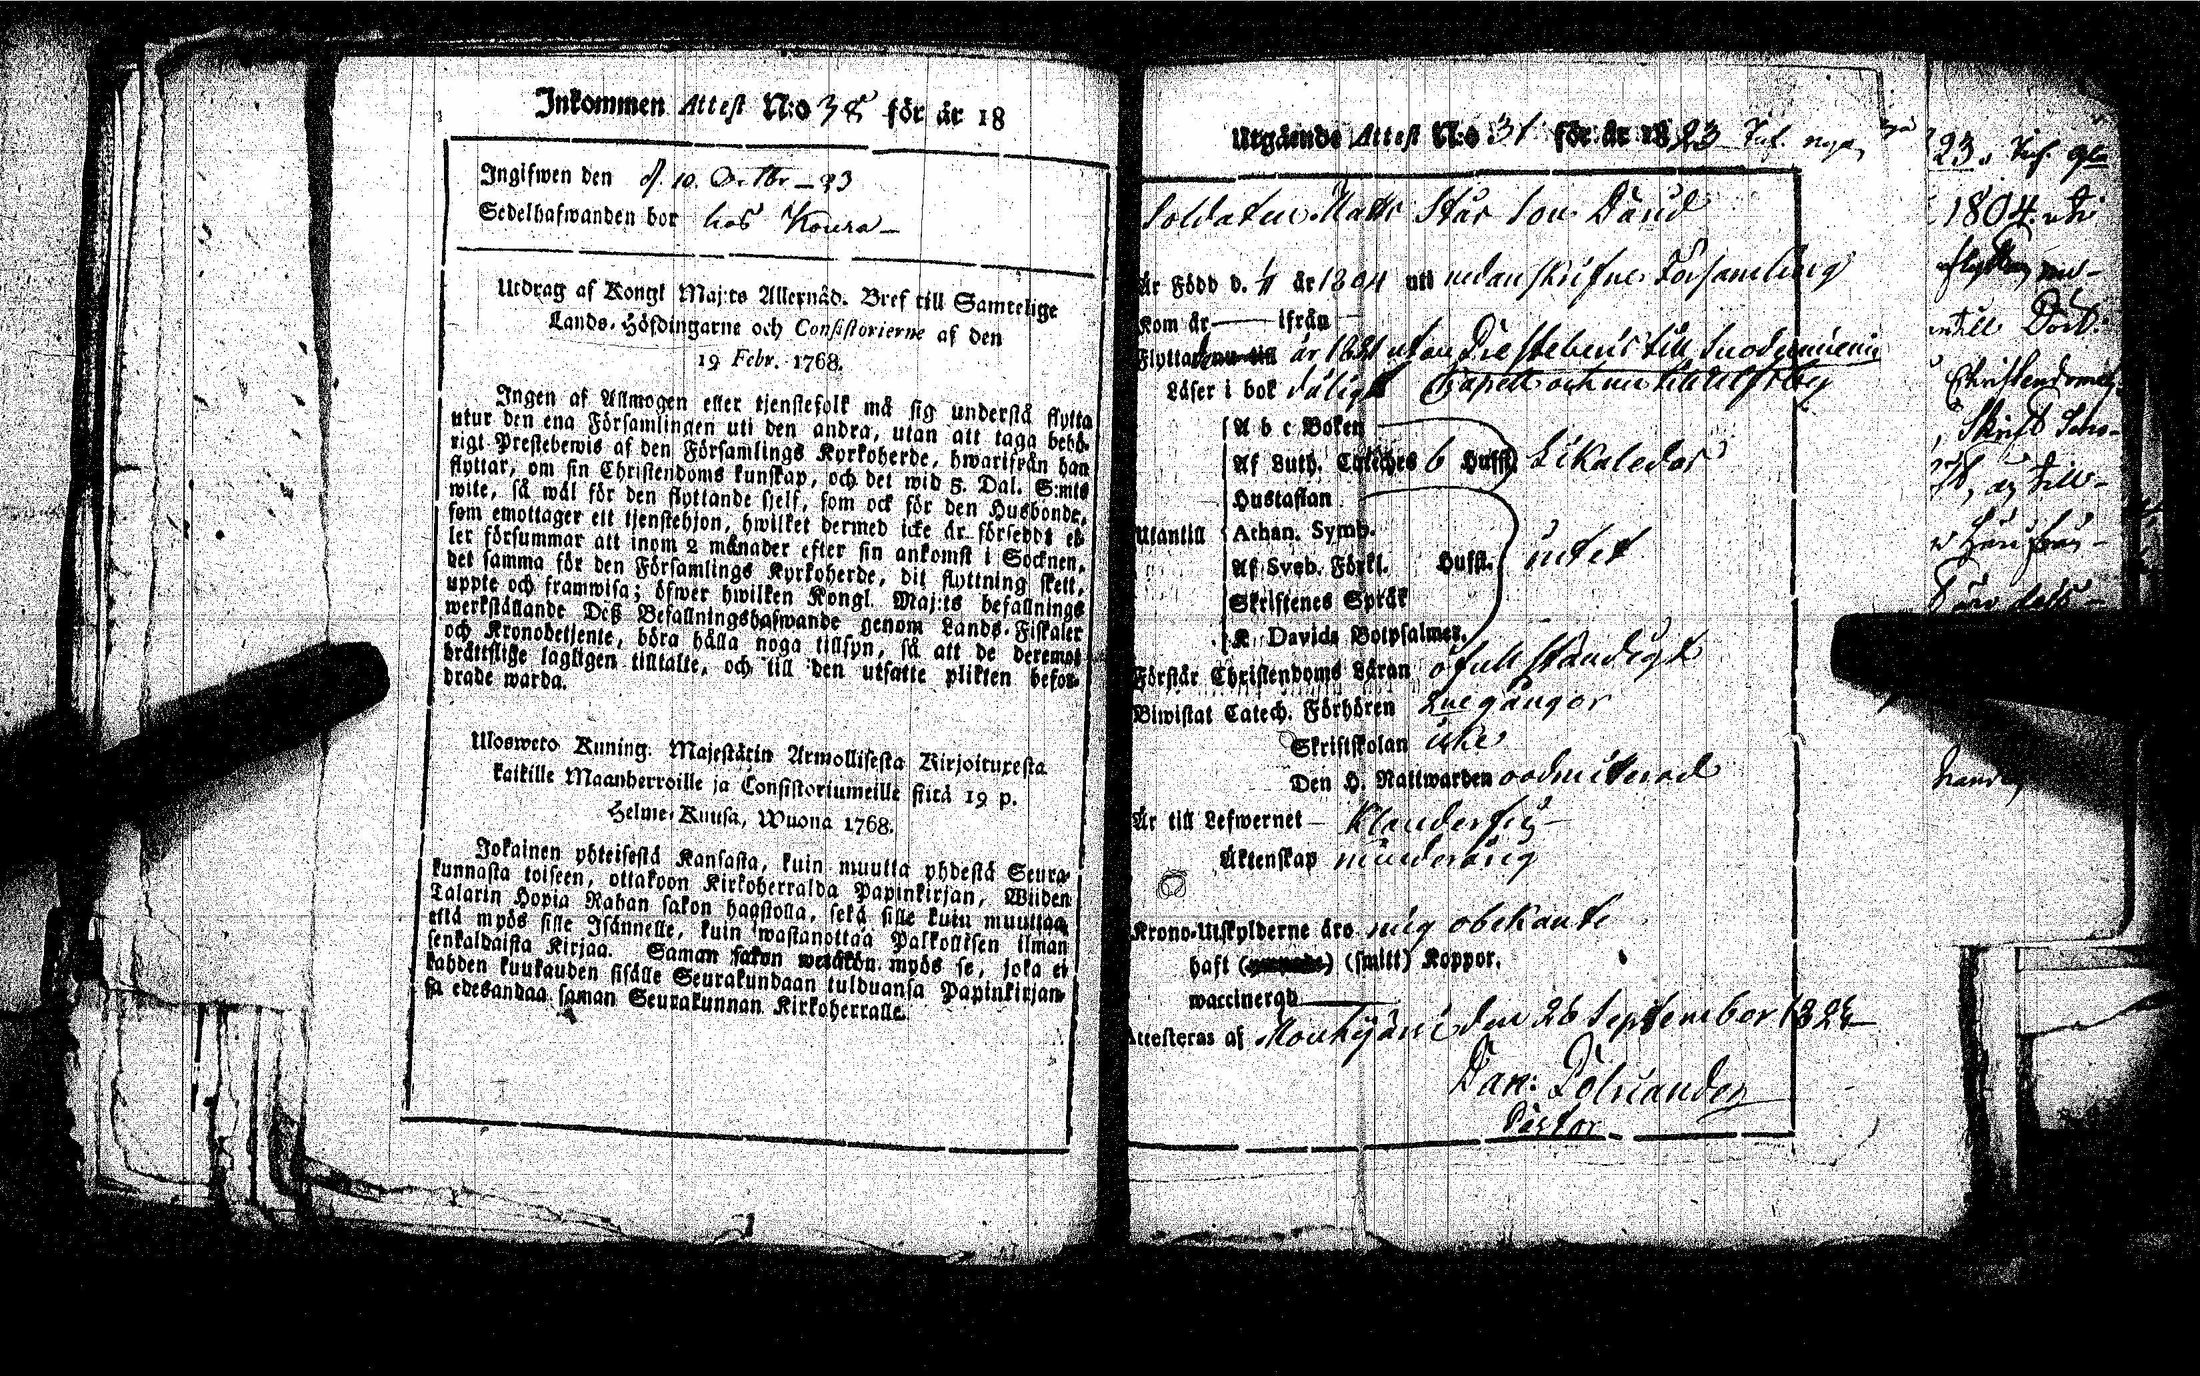 Inkommen Attest N:o 38 för år 18
Ingifwen den d. 10. Octbr – 23
Sedelhafwanden bor hos Koura –
Utdrag af Kongl Maj:ts Allernåd. Bref till Samtelige
Lands-Höfdingarne och Consistorierne af den
19 Febr. 1768.
Ingen af Allmogen eller tjenstefolk må sig understå flytta
utur den ena Församlingen uti den andra, utan att taga behö-
rigt Prestebewis af den Församlings Kyrkoherde, hwarifrån han
flyttar, om sin Christendoms kunskap, och det wid 5. Dal. S:mts
wite, så wäl för den flyttande sjelf, som ock för den Husbonde,
som emottager ett tjenstehjon, hwilket dermed icke är försedt; el-
ler försummar att inom 2 månader efter sin ankomst i Socknen,
det samma för den Församlings Kyrkoherde, dit flyttning skett,
uppte och framwisa; öfwer hwilken Kongl. Maj:ts befallnings
werkställande Deß Befallningshafwande genom Lands-Fiskaler
och Kronobetjente, böra hålla noga tillsyn, så att de deremot
bråttslige lagligen tilltalte, och till den utsatte plikten befor-
drade warda.
Uloswето Kuning. Majestätin Armollisesta Kirjoituxesta
kaikille Maanherroille ja Consistoriumeille siitä 19 p.
Helme-Kuusa, Wuona 1768.
Jokainen yhteisestä Kansasta, kuin muutta yhdestä Seura-
kunnasta toiseen, ottakoon Kirkoherralda Papinkirjan, Wiiden
Talarin Hopia Rahan sakon haastolla, sekä sille kuin muuttaa,
että myös sille Isännelle, kuin wastanottaa Palkollisen ilman
senkaldaista Kirjaa. Saman sakon wetäkön myös se, joka ei
kahden kuukauden sisälle Seurakundaan tulduansa Papinkirjan-
sa edesandaa saman Seurakunnan Kirkoherralle.
Utgående Attest N:o 31 för år 1823
Soldaten Matts Stås Son David
Är Född d. år 1804 uti nedanskrifne Församling
Kom år — ifrån —
Flyttar år 1821 utan Prestebevis till
Läser i bok dåligt Capell och nu till Ulfsby
A b c Boken
Af Luth. Catéches 6 Hufst. Likaledes
Hustaflan
Utantill Athan. Symb.
Af Sveb. Förkl. Hufst. intet
Skriftenes Språk
K. Davids Botpsalmer.
Förstår Christendoms Läran ofullständigt
Biwistat Catech. Förhören 2ne gångor
Skriftskolan icke
Den H. Nattwarden oadmitterad
Är till Lefwernet – klanderfri –
Äktenskap minderårig
Krono-Utskylderne äro mig obekante
haft (smitt) Koppor.
waccinerad —
Attesteras af Mouhijärvi den 26 September 1823
Dan: Polviander
Pastor
23.
1804. uti
Christendoms
Skrift